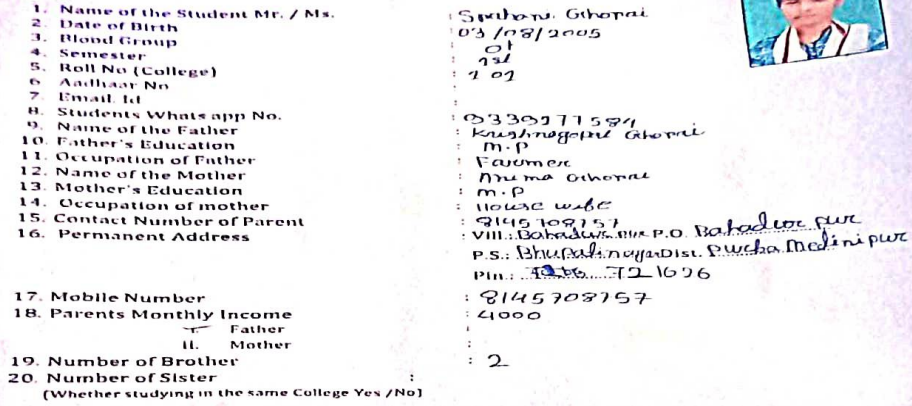 1. Name of the Student Mr. / Ms. : Ghorai
2. Date of Birth : 03/08/2005
3. Blood Group : O+
4. Semester : 1st
5. Roll No (College) : 101
6 Aadhaar No :
7. Email. Id :
8. Students Whats app No. :
9. Name of the Father : Krishnagopal Ghorai
10. Father's Education : M.P
11. Occupation of Father : Farmer
12. Name of the Mother : Anima Ghorai
13. Mother's Education : M.P
14. Occupation of mother : House wife
15. Contact Number of Parent :
16. Permanent Address : Vill.: Bahadur pur P.O. Bahadur pur
P.S.: Bhupatinagar Dist. Purba Medinipur
Pin.: 721626
17. Mobile Number : 8145708757
18. Parents Monthly Income : 4000
I. Father
II. Mother :
19. Number of Brother : 2
20. Number of Sister :
(Whether studying in the same College Yes /No)